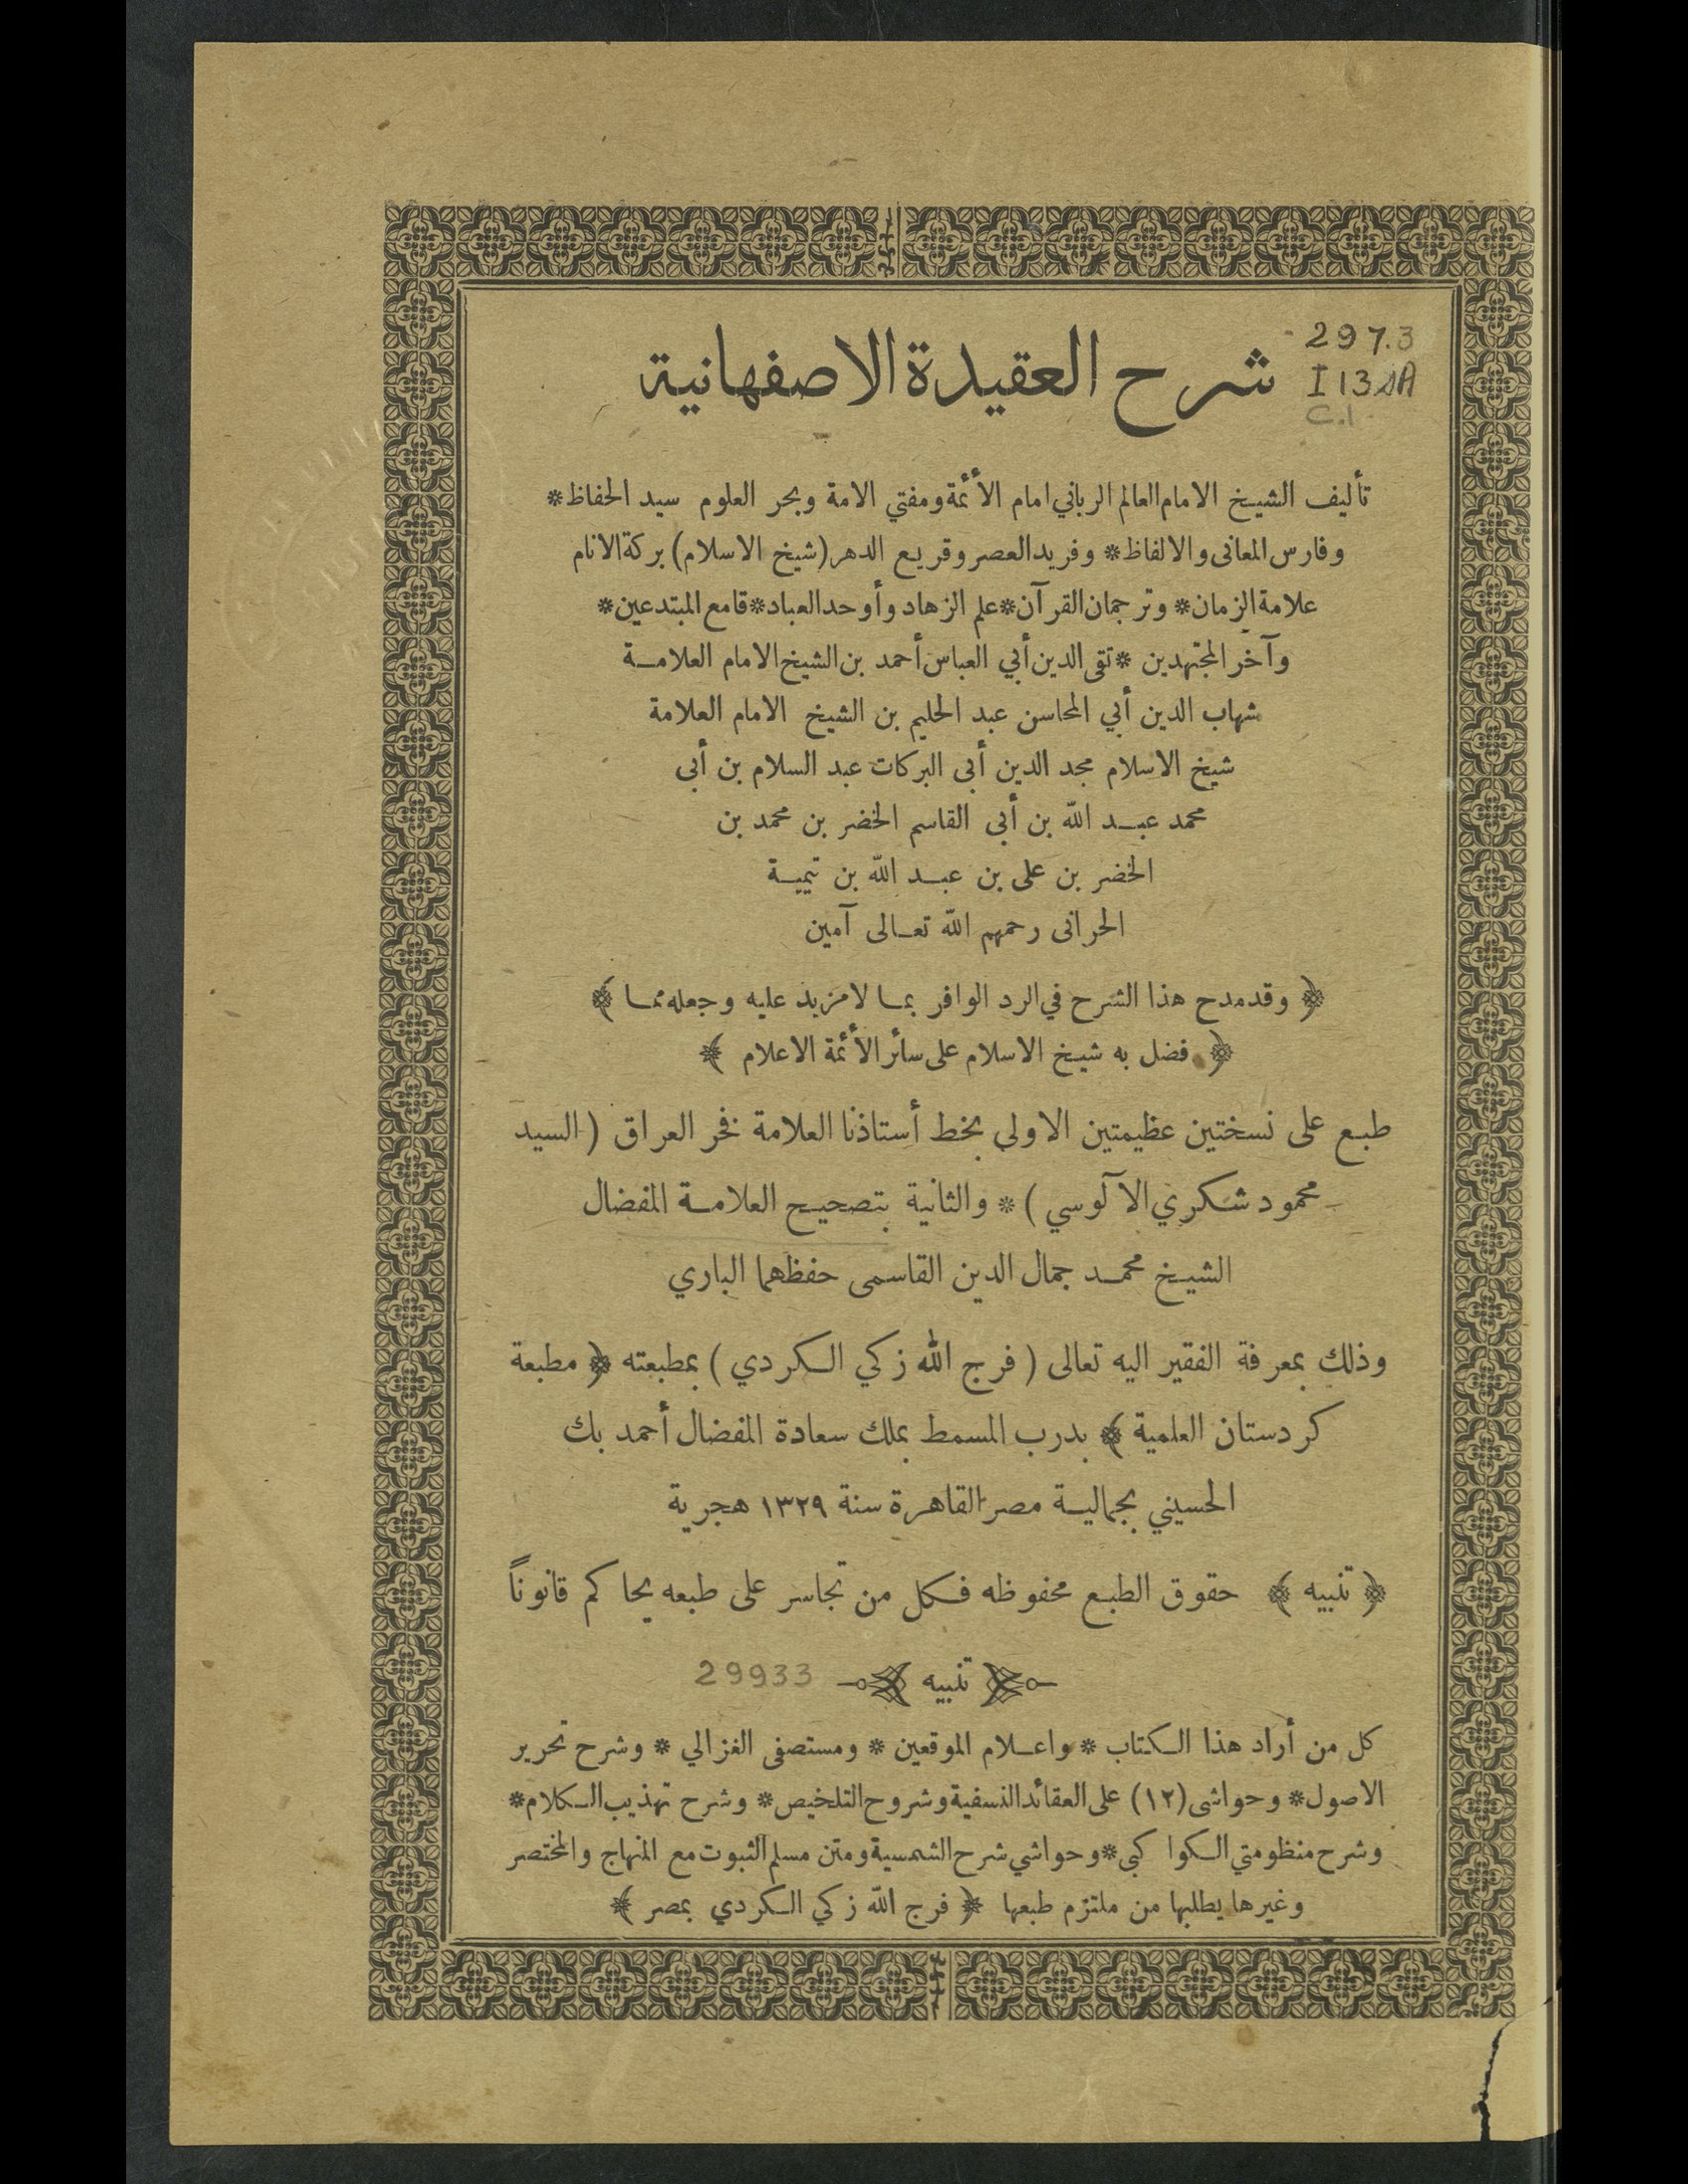 297.3
I13sA
c.1
شرح العقيدة الاصفهانية
تأليف الشيخ الامام العالم الرباني امام الأئمة ومفتي الامة وبحر العلوم سيد الحفاظ *
وفارس المعانى والالفاظ * وفريد العصر وقريع الدهر (شيخ الاسلام) بركة الانام
علامة الزمان * وترجمان القرآن * علم الزهاد وأوحد العباد * قامع المبتدعين *
وآخر المجتهدين * تقى الدين أبي العباس أحمد بن الشيخ الامام العلامة
شهاب الدين أبي المحاسن عبد الحليم بن الشيخ الامام العلامة
شيخ الاسلام مجد الدين أبى البركات عبد السلام بن أبى
محمد عبد الله بن أبى القاسم الخضر بن محمد بن
الخضر بن على بن عبد الله بن تيمية
الحرانى رحمهم الله تعالى آمين
﴿ وقد مدح هذا الشرح في الرد الوافر بما لا مزيد عليه وجعله مما ﴾
﴿ فضل به شيخ الاسلام على سائر الأئمة الاعلام ﴾
طبع على نسختين عظيمتين الاولى بخط أستاذنا العلامة فخر العراق ( السيد
محمود شكري الآلوسي ) * والثانية بتصحيح العلامة المفضال
الشيخ محمد جمال الدين القاسمى حفظهما الباري
وذلك بمعرفة الفقير اليه تعالى ( فرج الله زكي الكردي ) بمطبعته ﴿ مطبعة
كردستان العلمية ﴾ بدرب المسمط بملك سعادة المفضال أحمد بك
الحسيني بجمالية مصر القاهرة سنة ١٣٢٩ هجرية
﴿ تنبيه ﴾ حقوق الطبع محفوظه فكل من تجاسر على طبعه يحاكم قانوناً
تنبيه
29933
كل من أراد هذا الكتاب * واعلام الموقعين * ومستصفى الغزالي * وشرح تحرير
الاصول * وحواشى (١٢) على العقائد النسفية وشروح التلخيص * وشرح تهذيب الكلام *
وشرح منظومتي الكواكبى * وحواشي شرح الشمسية ومتن مسلم الثبوت مع المنهاج والمختصر
وغيرها يطلبها من ملتزم طبعها ﴿ فرج الله زكي الكردي بمصر ﴾